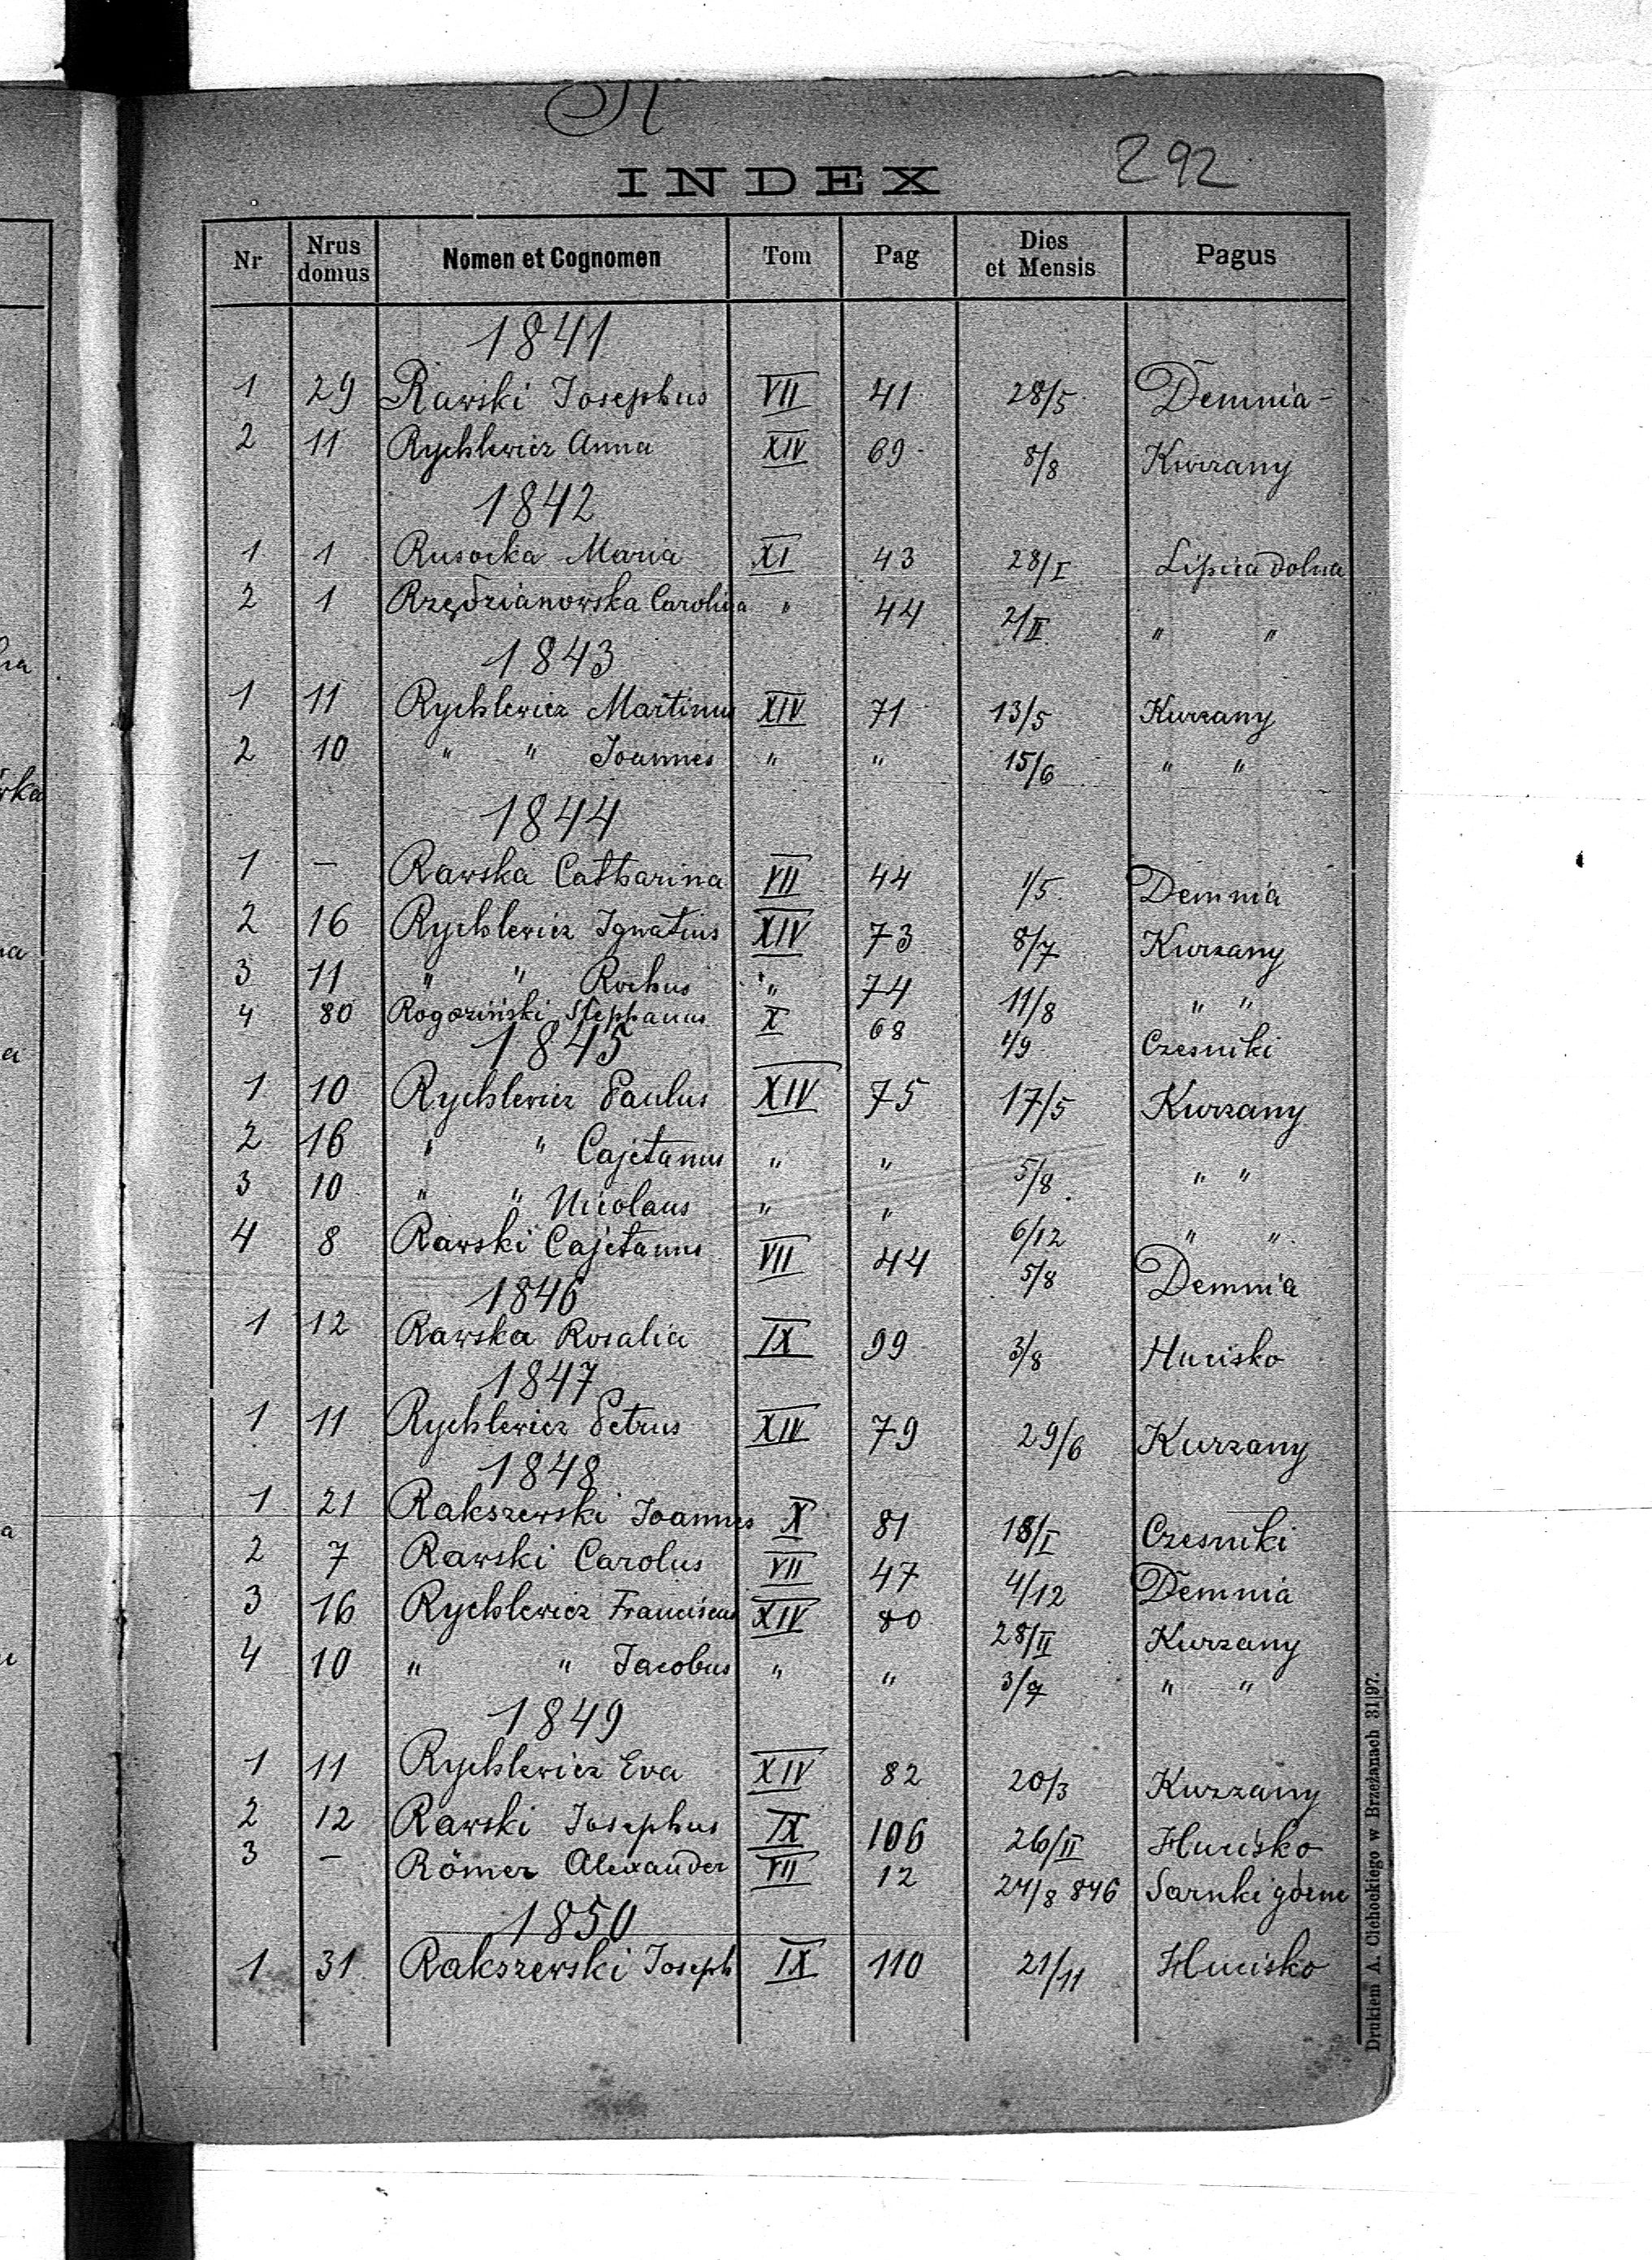 R
292
INDEX
Nr Nrus domus Nomen et Cognomen Tom Pag Dies et Mensis Pagus
1841
1 29 Rawski Josephus VII 41 28/5 Demnia
2 11 Rychlewicz Anna XIV 69 8/8 Kurzany
1842
1 1 Rusocka Maria XI 43 28/I Lipica dolna
2 1 Rzędzianowska Carolina " 44 2/II " "
1843
1 11 Rychlewicz Martinus XIV 71 13/5 Kurzany
2 10 " " Joannes " " 15/6 " "
1844
1 – Rawska Catharina VII 44 1/5 Demnia
2 16 Rychlewicz Ignatius XIV 73 8/7 Kurzany
3 11 " " Rochus " 74 11/8 " "
4 80 Rogoziński Stephanus X 68 1/9 Czesniki
1845
1 10 Rychlewicz Paulus XIV 75 17/5 Kurzany
2 16 " " Cajetanus " " 5/8 " "
3 10 " " Nicolaus " " 6/12 " "
4 8 Rawski Cajetanus VII 44 5/8 Demnia
1846
1 12 Rawska Rosalia IX 99 3/8 Hucisko
1847
1 11 Rychlewicz Petrus XIV 79 29/6 Kurzany
1848
1 21 Rakszewski Joannes X 81 18/I Czesniki
2 7 Rawski Carolus VII 47 4/12 Demnia
3 16 Rychlewicz Franciscus XIV 80 28/II Kurzany
4 10 " " Jacobus " " " "
1849
1 11 Rychlewicz Eva XIV 82 20/3 Kurzany
2 12 Rawski Josephus IX 106 26/II Hucisko
3 – Römer Alexander VII 12 24/8 846 Sarnki górne
1850
1 31 Rakszewski Joseph IX 110 21/11 Hucisko
Drukiem A. Cichockiego w Brzeżanach 31|97.